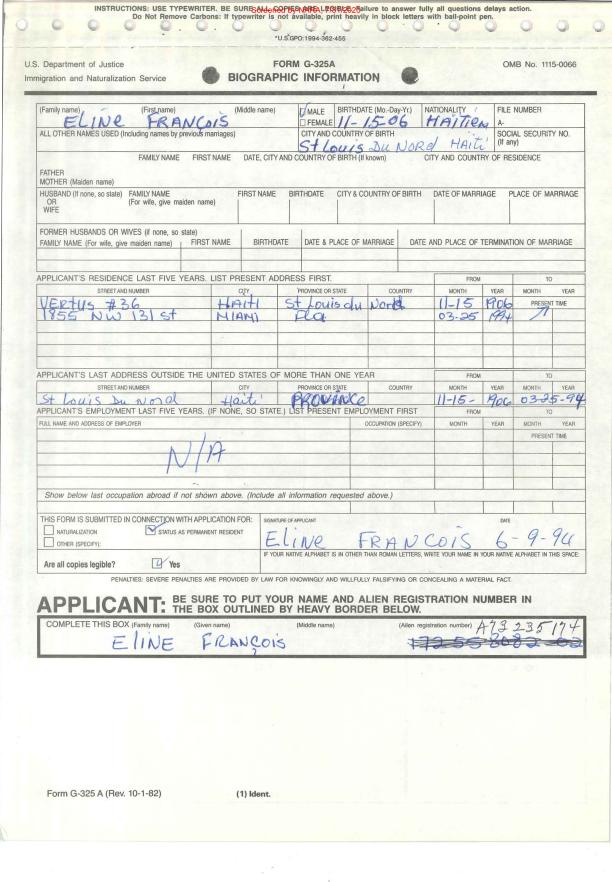 INSTRUCTIONS: USE TYPEWRITER. BE SURE ALL COPIES ARE LEGIBLE. Failure to answer fully all questions delays action.
Do Not Remove Carbons: If typewriter is not available, print heavily in block letters with ball-point pen.
*U.S GPO:1994-362-455
U.S. Department of Justice
Immigration and Naturalization Service
FORM G-325A
BIOGRAPHIC INFORMATION
OMB No. 1115-0066
(Family name) (First name) (Middle name) MALE BIRTHDATE (Mo.-Day-Yr.) NATIONALITY FILE NUMBER
ELINE FRANÇOIS FEMALE 11-15-06 HAITIEN A-
ALL OTHER NAMES USED (Including names by previous marriages) CITY AND COUNTRY OF BIRTH SOCIAL SECURITY NO. (If any)
St Louis Du Nord Haiti
FAMILY NAME FIRST NAME DATE, CITY AND COUNTRY OF BIRTH (If known) CITY AND COUNTRY OF RESIDENCE
FATHER
MOTHER (Maiden name)
HUSBAND (If none, so state) OR WIFE FAMILY NAME (For wife, give maiden name) FIRST NAME BIRTHDATE CITY & COUNTRY OF BIRTH DATE OF MARRIAGE PLACE OF MARRIAGE
FORMER HUSBANDS OR WIVES (if none, so state)
FAMILY NAME (For wife, give maiden name) FIRST NAME BIRTHDATE DATE & PLACE OF MARRIAGE DATE AND PLACE OF TERMINATION OF MARRIAGE
APPLICANT'S RESIDENCE LAST FIVE YEARS. LIST PRESENT ADDRESS FIRST. FROM TO
STREET AND NUMBER CITY PROVINCE OR STATE COUNTRY MONTH YEAR MONTH YEAR
VERTUS #36 HAITI St Louis du Nord 11-15 1906 PRESENT TIME
1855 NW 131 St MIAMI Fla 03-25 1994
APPLICANT'S LAST ADDRESS OUTSIDE THE UNITED STATES OF MORE THAN ONE YEAR FROM TO
STREET AND NUMBER CITY PROVINCE OR STATE COUNTRY MONTH YEAR MONTH YEAR
St Louis Du Nord Haiti PROVINCE 11-15- 1906 03-25-94
APPLICANT'S EMPLOYMENT LAST FIVE YEARS. (IF NONE, SO STATE.) LIST PRESENT EMPLOYMENT FIRST FROM TO
FULL NAME AND ADDRESS OF EMPLOYER OCCUPATION (SPECIFY) MONTH YEAR MONTH YEAR
PRESENT TIME
N/A
Show below last occupation abroad if not shown above. (Include all information requested above.)
THIS FORM IS SUBMITTED IN CONNECTION WITH APPLICATION FOR: SIGNATURE OF APPLICANT DATE
NATURALIZATION STATUS AS PERMANENT RESIDENT
OTHER (SPECIFY): Eline FRANCOIS 6-9-94
IF YOUR NATIVE ALPHABET IS IN OTHER THAN ROMAN LETTERS, WRITE YOUR NAME IN YOUR NATIVE ALPHABET IN THIS SPACE:
Are all copies legible? Yes
PENALTIES: SEVERE PENALTIES ARE PROVIDED BY LAW FOR KNOWINGLY AND WILLFULLY FALSIFYING OR CONCEALING A MATERIAL FACT.
APPLICANT: BE SURE TO PUT YOUR NAME AND ALIEN REGISTRATION NUMBER IN
THE BOX OUTLINED BY HEAVY BORDER BELOW.
COMPLETE THIS BOX (Family name) (Given name) (Middle name) (Alien registration number) A73 235 174
ELINE FRANÇOIS
Form G-325 A (Rev. 10-1-82) (1) Ident.